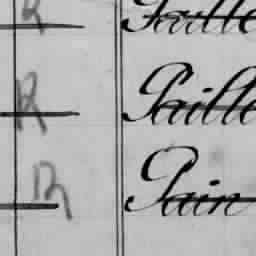 R Paille
R Paille
R Pain